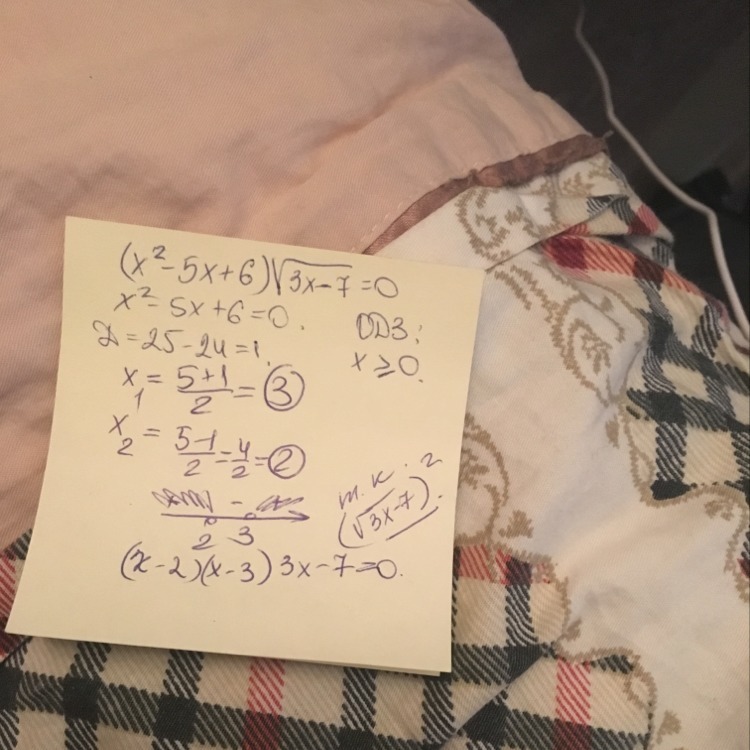 (x²-5x+6)√3x-7=0
x²-5x+6=0.
D=25-24=1.
x₁=5+1/2=3
x₂=5-1/2=4/2=2
ОДЗ:
x⩾0.
т.к.
(√3x-7)².
2 3
(x-2)(x-3)3x-7=0.